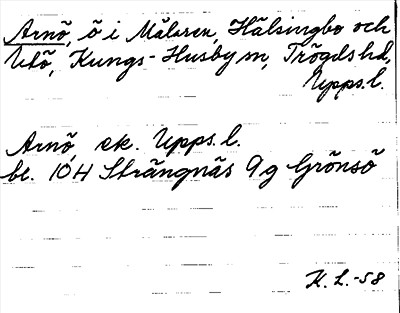 Arnö, ö i Mälaren, Hälsingbo och
Utö, Kungs-Husby sn, Trögds hd,
Upps. l.
Arnö, ek. Upps. l.
bl. 10H Strängnäs 9g Grönsö
K. L. -58